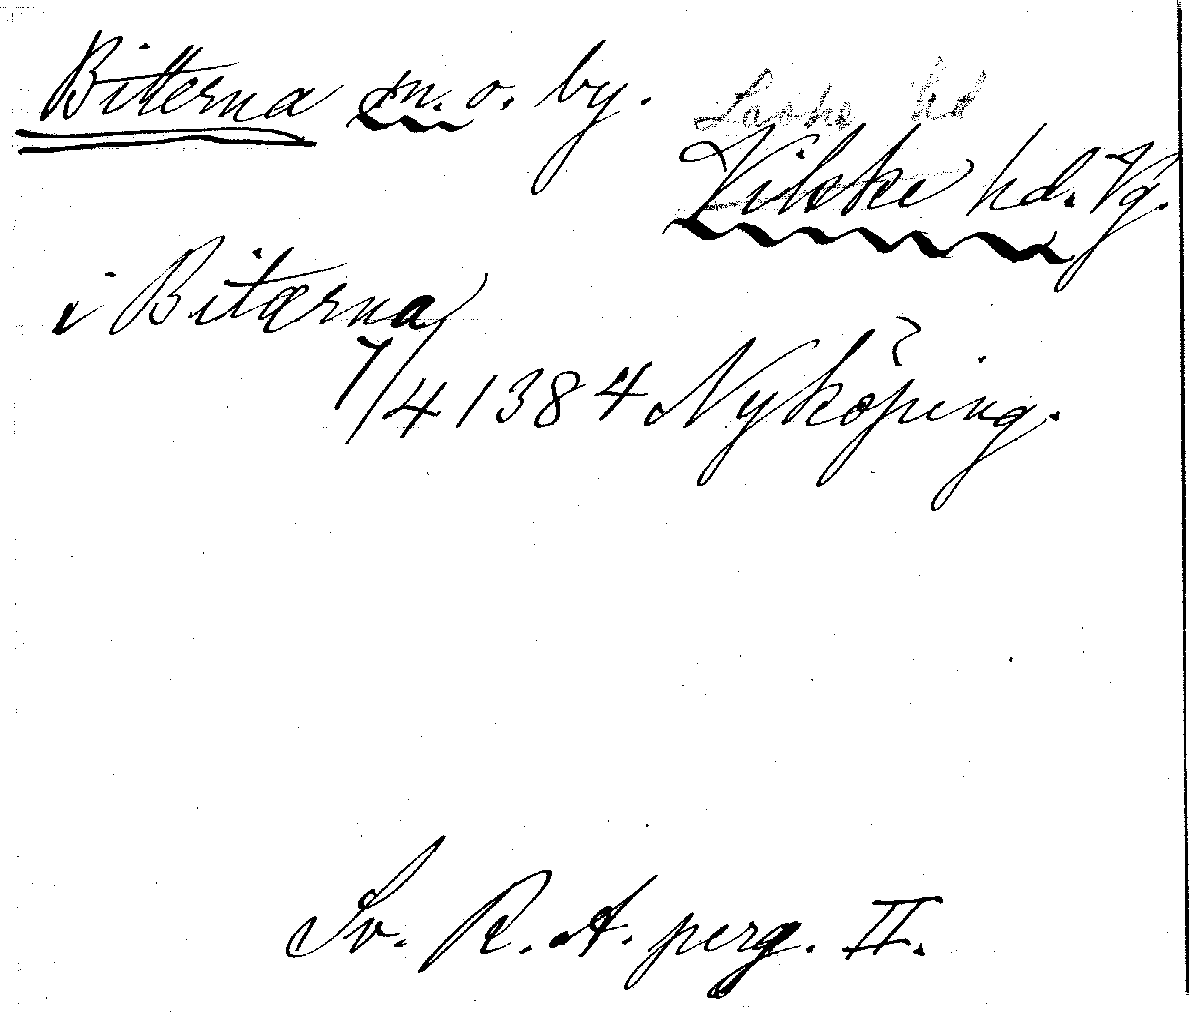 Bitterna sn. o. by. Laske hd
Vilske hd. Vg.
i Bitærna
7/4 1384 Nyköping.
Sv. R. A. perg. II.